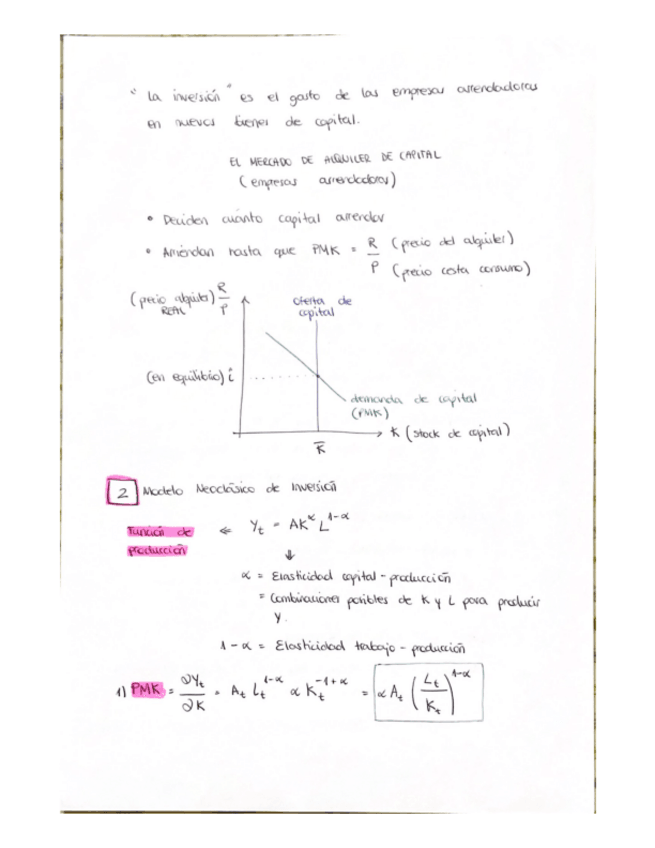 " La inversión " es el gasto de las empresas arrendadoras
en nuevos bienes de capital.
EL MERCADO DE ALQUILER DE CAPITAL
( empresas arrendadoras)
• Deciden cuánto capital arrendar
• Arriendan hasta que PMK = R/P (precio del alquiler) (precio cesta consumo)
(precio alquiler) R/P
REAL
Oferta de
capital
(en equilibrio) i
demanda de capital
(PMK)
K (stock de capital)
K̅
2 Modelo Neoclásico de Inversión
Función de
producción
⇐ Yₜ = AK^α L^1-α
⇓
α = Elasticidad capital - producción
= Combinaciones posibles de K y L para producir
Y.
1 - α = Elasticidad trabajo - producción
1) PMK = ∂Yₜ/∂K = Aₜ Lₜ^1-α α Kₜ^-1+α = α Aₜ (Lₜ/Kₜ)^1-α